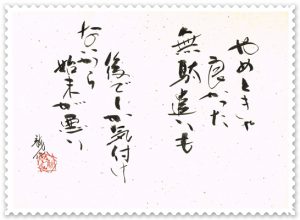 やめときゃ
良かった
無駄遣いも
後でしか気付け
ないから
始末が悪い